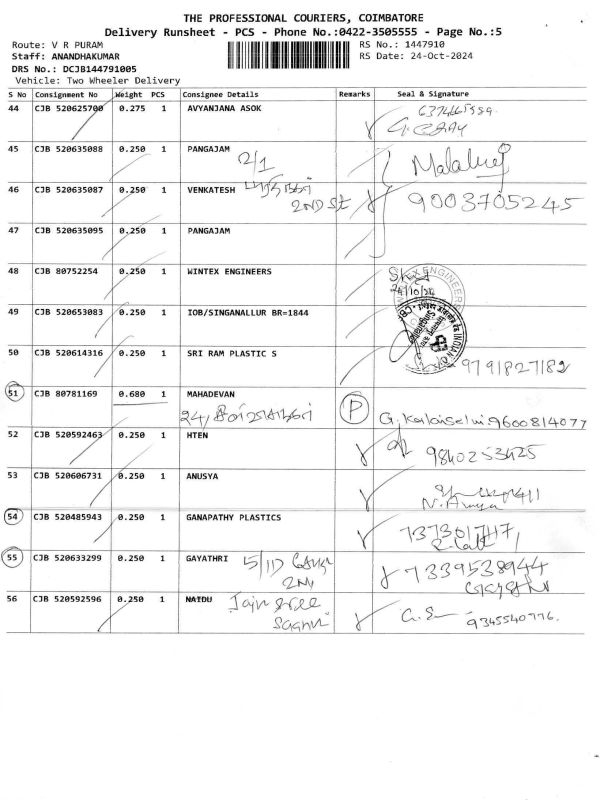 THE PROFESSIONAL COURIERS, COIMBATORE
Delivery Runsheet - PCS - Phone No.:0422-3505555 - Page No.:5
Route: V R PURAM RS No.: 1447910
Staff: ANANDHAKUMAR RS Date: 24-Oct-2024
DRS No.: DCJB144791005
Vehicle: Two Wheeler Delivery
S No Consignment No Weight PCS Consignee Details Remarks Seal & Signature
44 CJB 520625700 0.275 1 AVYANJANA ASOK
45 CJB 520635088 0.250 1 PANGAJAM
2/1 Malathi
46 CJB 520635087 0.250 1 VENKATESH 9003705245
2ND St
47 CJB 520635095 0.250 1 PANGAJAM
48 CJB 80752254 0.250 1 WINTEX ENGINEERS
24/10/24
49 CJB 520653083 0.250 1 IOB/SINGANALLUR BR=1844
50 CJB 520614316 0.250 1 SRI RAM PLASTIC S
9791827182
51 CJB 80781169 0.680 1 MAHADEVAN P
24, G. Kalaiselvi 9600814077
52 CJB 520592463 0.250 1 HTEN
9840253425
53 CJB 520606731 0.250 1 ANUSYA
54 CJB 520485943 0.250 1 GANAPATHY PLASTICS
55 CJB 520633299 0.250 1 GAYATHRI 5/1D 7339538944
56 CJB 520592596 0.250 1 NAIDU Jain Sree
9345540776.